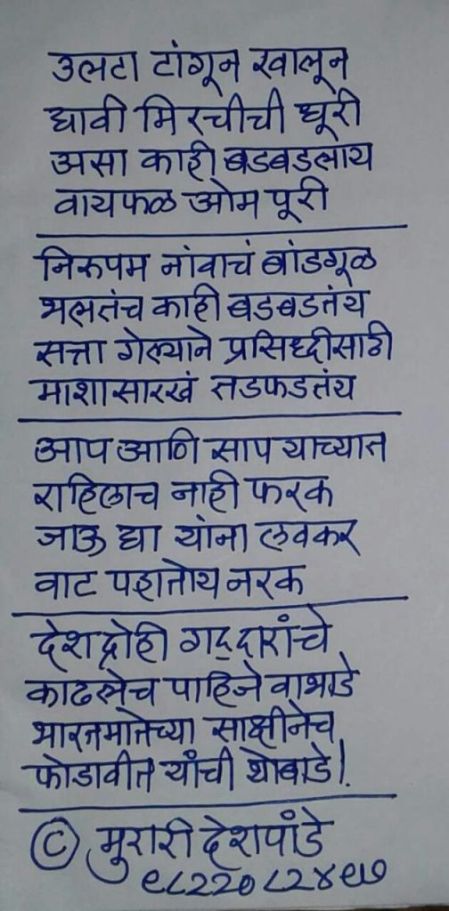 उलटा टांगून खालून
द्यावी मिरचीची धूरी
असा काही बडबडलाय
वायफळ ओम पूरी
निरुपम नांवाचं बांडगूळ
भलतंच काही बडबडतंय
सत्ता गेल्याने प्रसिध्दीसाठी
माशासारखं तडफडतंय
आप आणि साप याच्यात
राहिलाच नाही फरक
जाऊ द्या यांना लवकर
वाट पहातोय नरक
देशद्रोही गद्दारांचे
काढलेच पाहिजे वाभाडे
भारतमातेच्या साक्षीनेच
फोडावीत यांची थोबाडे!
© मुरारी देशपांडे
९८२२०८२४९७